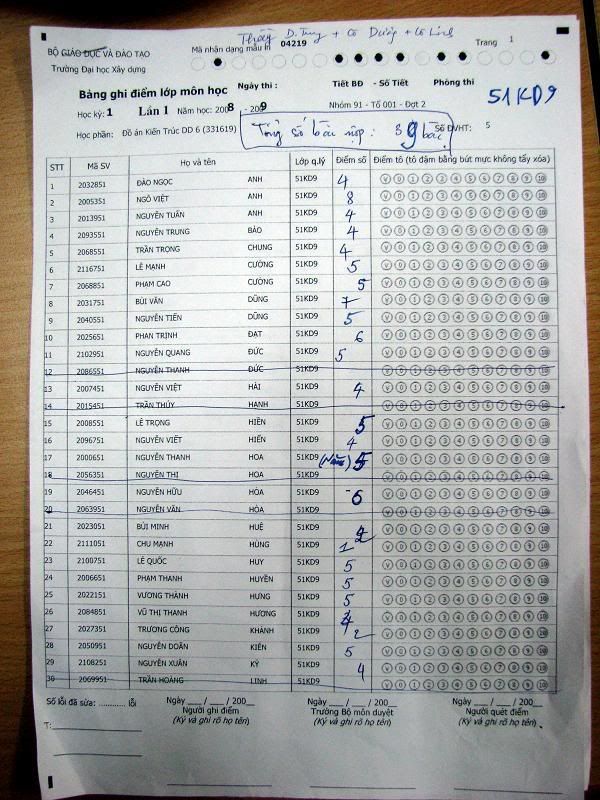 Thầy D. Tùng + Cô Dương + Cô Linh
BỘ GIÁO DỤC VÀ ĐÀO TẠO Mã nhận dạng mẫu in 04219 Trang 1
Trường Đại học Xây dựng
Bảng ghi điểm lớp môn học Ngày thi : Tiết BĐ - Số Tiết Phòng thi
51KD9
Học kỳ: 1 Lần 1 Năm học: 2008 - 2009 Nhóm 91 - Tổ 001 - Đợt 2
Học phần: Đồ án Kiến Trúc DD 6 (331619) Tổng số bài nộp: 39 bài Số ĐVHT: 5
STT Mã SV Họ và tên Lớp q.lý Điểm số Điểm tô (tô đậm bằng bút mực không tẩy xóa)
1 2032851 ĐÀO NGỌC ANH 51KD9 4 V 0 1 2 3 4 5 6 7 8 9 10
2 2005351 NGÔ VIỆT ANH 51KD9 8 V 0 1 2 3 4 5 6 7 8 9 10
3 2013951 NGUYỄN TUẤN ANH 51KD9 4 V 0 1 2 3 4 5 6 7 8 9 10
4 2093551 NGUYỄN TRUNG BẢO 51KD9 4 V 0 1 2 3 4 5 6 7 8 9 10
5 2068551 TRẦN TRỌNG CHUNG 51KD9 4 V 0 1 2 3 4 5 6 7 8 9 10
6 2116751 LÊ MẠNH CƯỜNG 51KD9 5 V 0 1 2 3 4 5 6 7 8 9 10
7 2068851 PHẠM CAO CƯỜNG 51KD9 5 V 0 1 2 3 4 5 6 7 8 9 10
8 2031751 BÙI VĂN DŨNG 51KD9 7 V 0 1 2 3 4 5 6 7 8 9 10
9 2040551 NGUYỄN TIẾN DŨNG 51KD9 5 V 0 1 2 3 4 5 6 7 8 9 10
10 2025651 PHAN TRỊNH ĐẠT 51KD9 6 V 0 1 2 3 4 5 6 7 8 9 10
11 2102951 NGUYỄN QUANG ĐỨC 51KD9 5 V 0 1 2 3 4 5 6 7 8 9 10
12 2086551 NGUYỄN THANH ĐỨC 51KD9 V 0 1 2 3 4 5 6 7 8 9 10
13 2007451 NGUYỄN VIỆT HẢI 51KD9 4 V 0 1 2 3 4 5 6 7 8 9 10
14 2015451 TRẦN THÚY HẠNH 51KD9 V 0 1 2 3 4 5 6 7 8 9 10
15 2008551 LÊ TRỌNG HIỀN 51KD9 5 V 0 1 2 3 4 5 6 7 8 9 10
16 2096751 NGUYỄN VIẾT HIẾN 51KD9 4 V 0 1 2 3 4 5 6 7 8 9 10
17 2000651 NGUYỄN THANH HOA 51KD9 5 V 0 1 2 3 4 5 6 7 8 9 10
18 2056351 NGUYỄN THỊ HOA 51KD9 V 0 1 2 3 4 5 6 7 8 9 10
19 2046451 NGUYỄN HỮU HÒA 51KD9 6 V 0 1 2 3 4 5 6 7 8 9 10
20 2063951 NGUYỄN VĂN HÒA 51KD9 V 0 1 2 3 4 5 6 7 8 9 10
21 2023051 BÙI MINH HUỆ 51KD9 V 0 1 2 3 4 5 6 7 8 9 10
22 2111051 CHU MẠNH HÙNG 51KD9 1 V 0 1 2 3 4 5 6 7 8 9 10
23 2100751 LÊ QUỐC HUY 51KD9 5 V 0 1 2 3 4 5 6 7 8 9 10
24 2006651 PHẠM THANH HUYỀN 51KD9 5 V 0 1 2 3 4 5 6 7 8 9 10
25 2022151 VƯƠNG THÀNH HƯNG 51KD9 5 V 0 1 2 3 4 5 6 7 8 9 10
26 2084851 VŨ THỊ THANH HƯƠNG 51KD9 V 0 1 2 3 4 5 6 7 8 9 10
27 2027351 TRƯƠNG CÔNG KHÁNH 51KD9 2 V 0 1 2 3 4 5 6 7 8 9 10
28 2050951 NGUYỄN DOÃN KIÊN 51KD9 5 V 0 1 2 3 4 5 6 7 8 9 10
29 2108251 NGUYỄN XUÂN KỲ 51KD9 4 V 0 1 2 3 4 5 6 7 8 9 10
30 2069951 TRẦN HOÀNG LINH 51KD9 V 0 1 2 3 4 5 6 7 8 9 10
Số lỗi đã sửa: ............ lỗi Ngày ___ / ___ / 200__ Ngày ___ / ___ / 200__ Ngày ___ / ___ / 200__
Người ghi điểm Trưởng Bộ môn duyệt Người quét điểm
T: (Ký và ghi rõ họ tên) (Ký và ghi rõ họ tên) (Ký và ghi rõ họ tên)